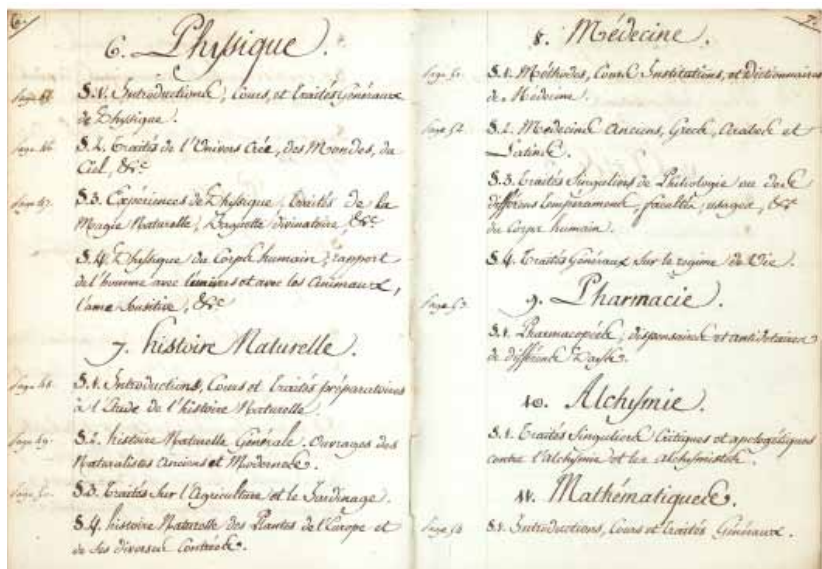 6.
6. Physique.
§.1. Introductions, Cours, et traités Généraux
de Physique.
Page 46. §.2. traités de l'Univers Crée, des Mondes, du
Ciel, &c.
Page 47. §.3. Expériences de Physique, traités de la
Magie Naturelle, Baguette divinatoire, &c.
§.4. Physique du Corps humain, rapport
de l'homme avec l'univers et avec les Animaux,
l'ame Sensitive, &c.
7. histoire Naturelle.
Page 48. §.1. Introductions, Cours et traités préparatoires
à l'Etude de l'histoire Naturelle.
Page 49. §.2. histoire Naturelle Générale. Ouvrages des
Naturalistes Anciens et Modernes.
§.3. traités Sur l'Agriculture et le Jardinage.
§.4. histoire Naturelle des Plantes de l'Europe et
de Ses diverses Contrées.
7.
8. Médecine.
Page 51. §.1. Méthodes, Cours Institutions, et Dictionnaires
de Médecine.
Page 52. §.2. Médecins Anciens, Grecs, Arabes et
Latins.
§.3. traités Singuliers de Phisiologie ou des
différens tempéraments, facultés, usages, &c.
du Corps humain.
§.4. traités Généraux Sur le régime de Vie.
Page 53. 9. Pharmacie.
§.1. Pharmacopées, dispensaires et antidotaires
de différents Pays.
10. Alchymie.
§.1. traités Singuliers Critiques et apologétiques
contre l'alchymie et les alchymistes.
11. Mathématiques.
§.1. Introductions, Cours et traités Généraux.